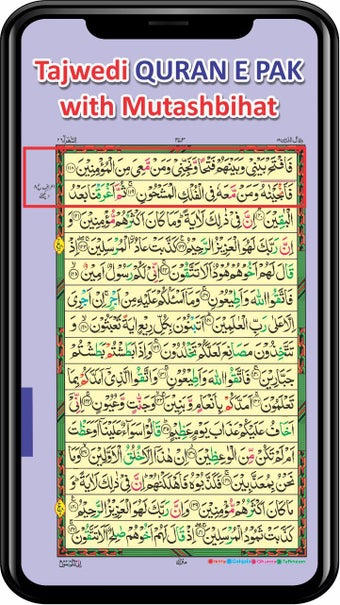 Tajwedi QURAN E PAK
with Mutashbihat
فَافْتَحْ بَيْنِيْ وَبَيْنَهُمْ فَتْحًا وَّنَجِّنِيْ وَمَنْ مَّعِيَ مِنَ الْمُؤْمِنِيْنَ ۝۱۱۸
فَاَنْجَيْنٰهُ وَمَنْ مَّعَهٗ فِي الْفُلْكِ الْمَشْحُوْنِ ۝۱۱۹ ثُمَّ اَغْرَقْنَا بَعْدُ
الْبٰقِيْنَ ۝۱۲۰ اِنَّ فِيْ ذٰلِكَ لَاٰيَةً ؕ وَمَا كَانَ اَكْثَرُهُمْ مُّؤْمِنِيْنَ ۝۱۲۱ وَ
اِنَّ رَبَّكَ لَهُوَ الْعَزِيْزُ الرَّحِيْمُ ۝۱۲۲ كَذَّبَتْ عَادُ ࣙالْمُرْسَلِيْنَ ۝۱۲۳ اِذْ
قَالَ لَهُمْ اَخُوْهُمْ هُوْدٌ اَلَا تَتَّقُوْنَ ۝۱۲۴ اِنِّيْ لَكُمْ رَسُوْلٌ اَمِيْنٌ ۝۱۲۵
فَاتَّقُوا اللّٰهَ وَاَطِيْعُوْنِ ۝۱۲۶ وَمَاۤ اَسْـَٔلُكُمْ عَلَيْهِ مِنْ اَجْرٍ ۚ اِنْ اَجْرِيَ
اِلَّا عَلٰى رَبِّ الْعٰلَمِيْنَ ۝۱۲۷ اَتَبْنُوْنَ بِكُلِّ رِيْعٍ اٰيَةً تَعْبَثُوْنَ ۝۱۲۸ وَ
تَتَّخِذُوْنَ مَصَانِعَ لَعَلَّكُمْ تَخْلُدُوْنَ ۝۱۲۹ وَاِذَا بَطَشْتُمْ بَطَشْتُمْ
جَبَّارِيْنَ ۝۱۳۰ فَاتَّقُوا اللّٰهَ وَاَطِيْعُوْنِ ۝۱۳۱ وَاتَّقُوا الَّذِيْۤ اَمَدَّكُمْ بِمَا
تَعْلَمُوْنَ ۝۱۳۲ اَمَدَّكُمْ بِاَنْعَامٍ وَّبَنِيْنَ ۝۱۳۳ وَجَنّٰتٍ وَّعُيُوْنٍ ۝۱۳۴ اِنِّيْۤ
اَخَافُ عَلَيْكُمْ عَذَابَ يَوْمٍ عَظِيْمٍ ۝۱۳۵ قَالُوْا سَوَآءٌ عَلَيْنَاۤ اَوَعَظْتَ
اَمْ لَمْ تَكُنْ مِّنَ الْوٰعِظِيْنَ ۝۱۳۶ اِنْ هٰذَاۤ اِلَّا خُلُقُ الْاَوَّلِيْنَ ۝۱۳۷ وَمَا
نَحْنُ بِمُعَذَّبِيْنَ ۝۱۳۸ فَكَذَّبُوْهُ فَاَهْلَكْنٰهُمْ ؕ اِنَّ فِيْ ذٰلِكَ لَاٰيَةً ؕ وَ
مَا كَانَ اَكْثَرُهُمْ مُّؤْمِنِيْنَ ۝۱۳۹ وَاِنَّ رَبَّكَ لَهُوَ الْعَزِيْزُ الرَّحِيْمُ ۝۱۴۰
كَذَّبَتْ ثَمُوْدُ الْمُرْسَلِيْنَ ۝۱۴۱ اِذْ قَالَ لَهُمْ اَخُوْهُمْ صٰلِحٌ اَلَا تَتَّقُوْنَ ۝۱۴۲